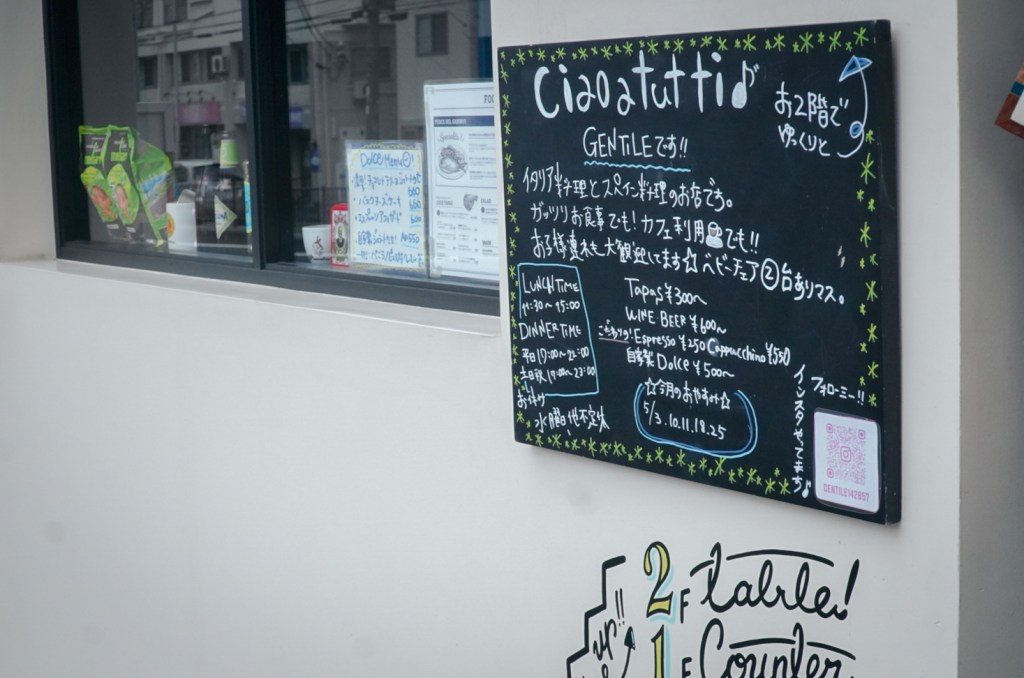 Ciao a tutti♪
お2階で
ゆっくりと
GENTILEです!!
イタリア料理とスペイン料理のお店です。
ガッツリお食事でも!カフェ利用でも!!
お子様連れも大歓迎してます☆ベビーチェア②台ありマス。
LUNCH TIME
11:30〜15:00
DINNER TIME
平日17:00〜22:00
土日祝17:00〜23:00
お休み
水曜日他不定休
Tapas ¥300〜
WINE BEER ¥600〜
こだわりの!Espresso ¥250 Cappucchino ¥550
自家製 Dolce ¥500〜
☆今月のおやすみ☆
5/3.10.11.18.25
フォローミー!!
インスタやってまち♪
GENTILE142857
DOLCE MENU
2F table!
1F Counter
up!!